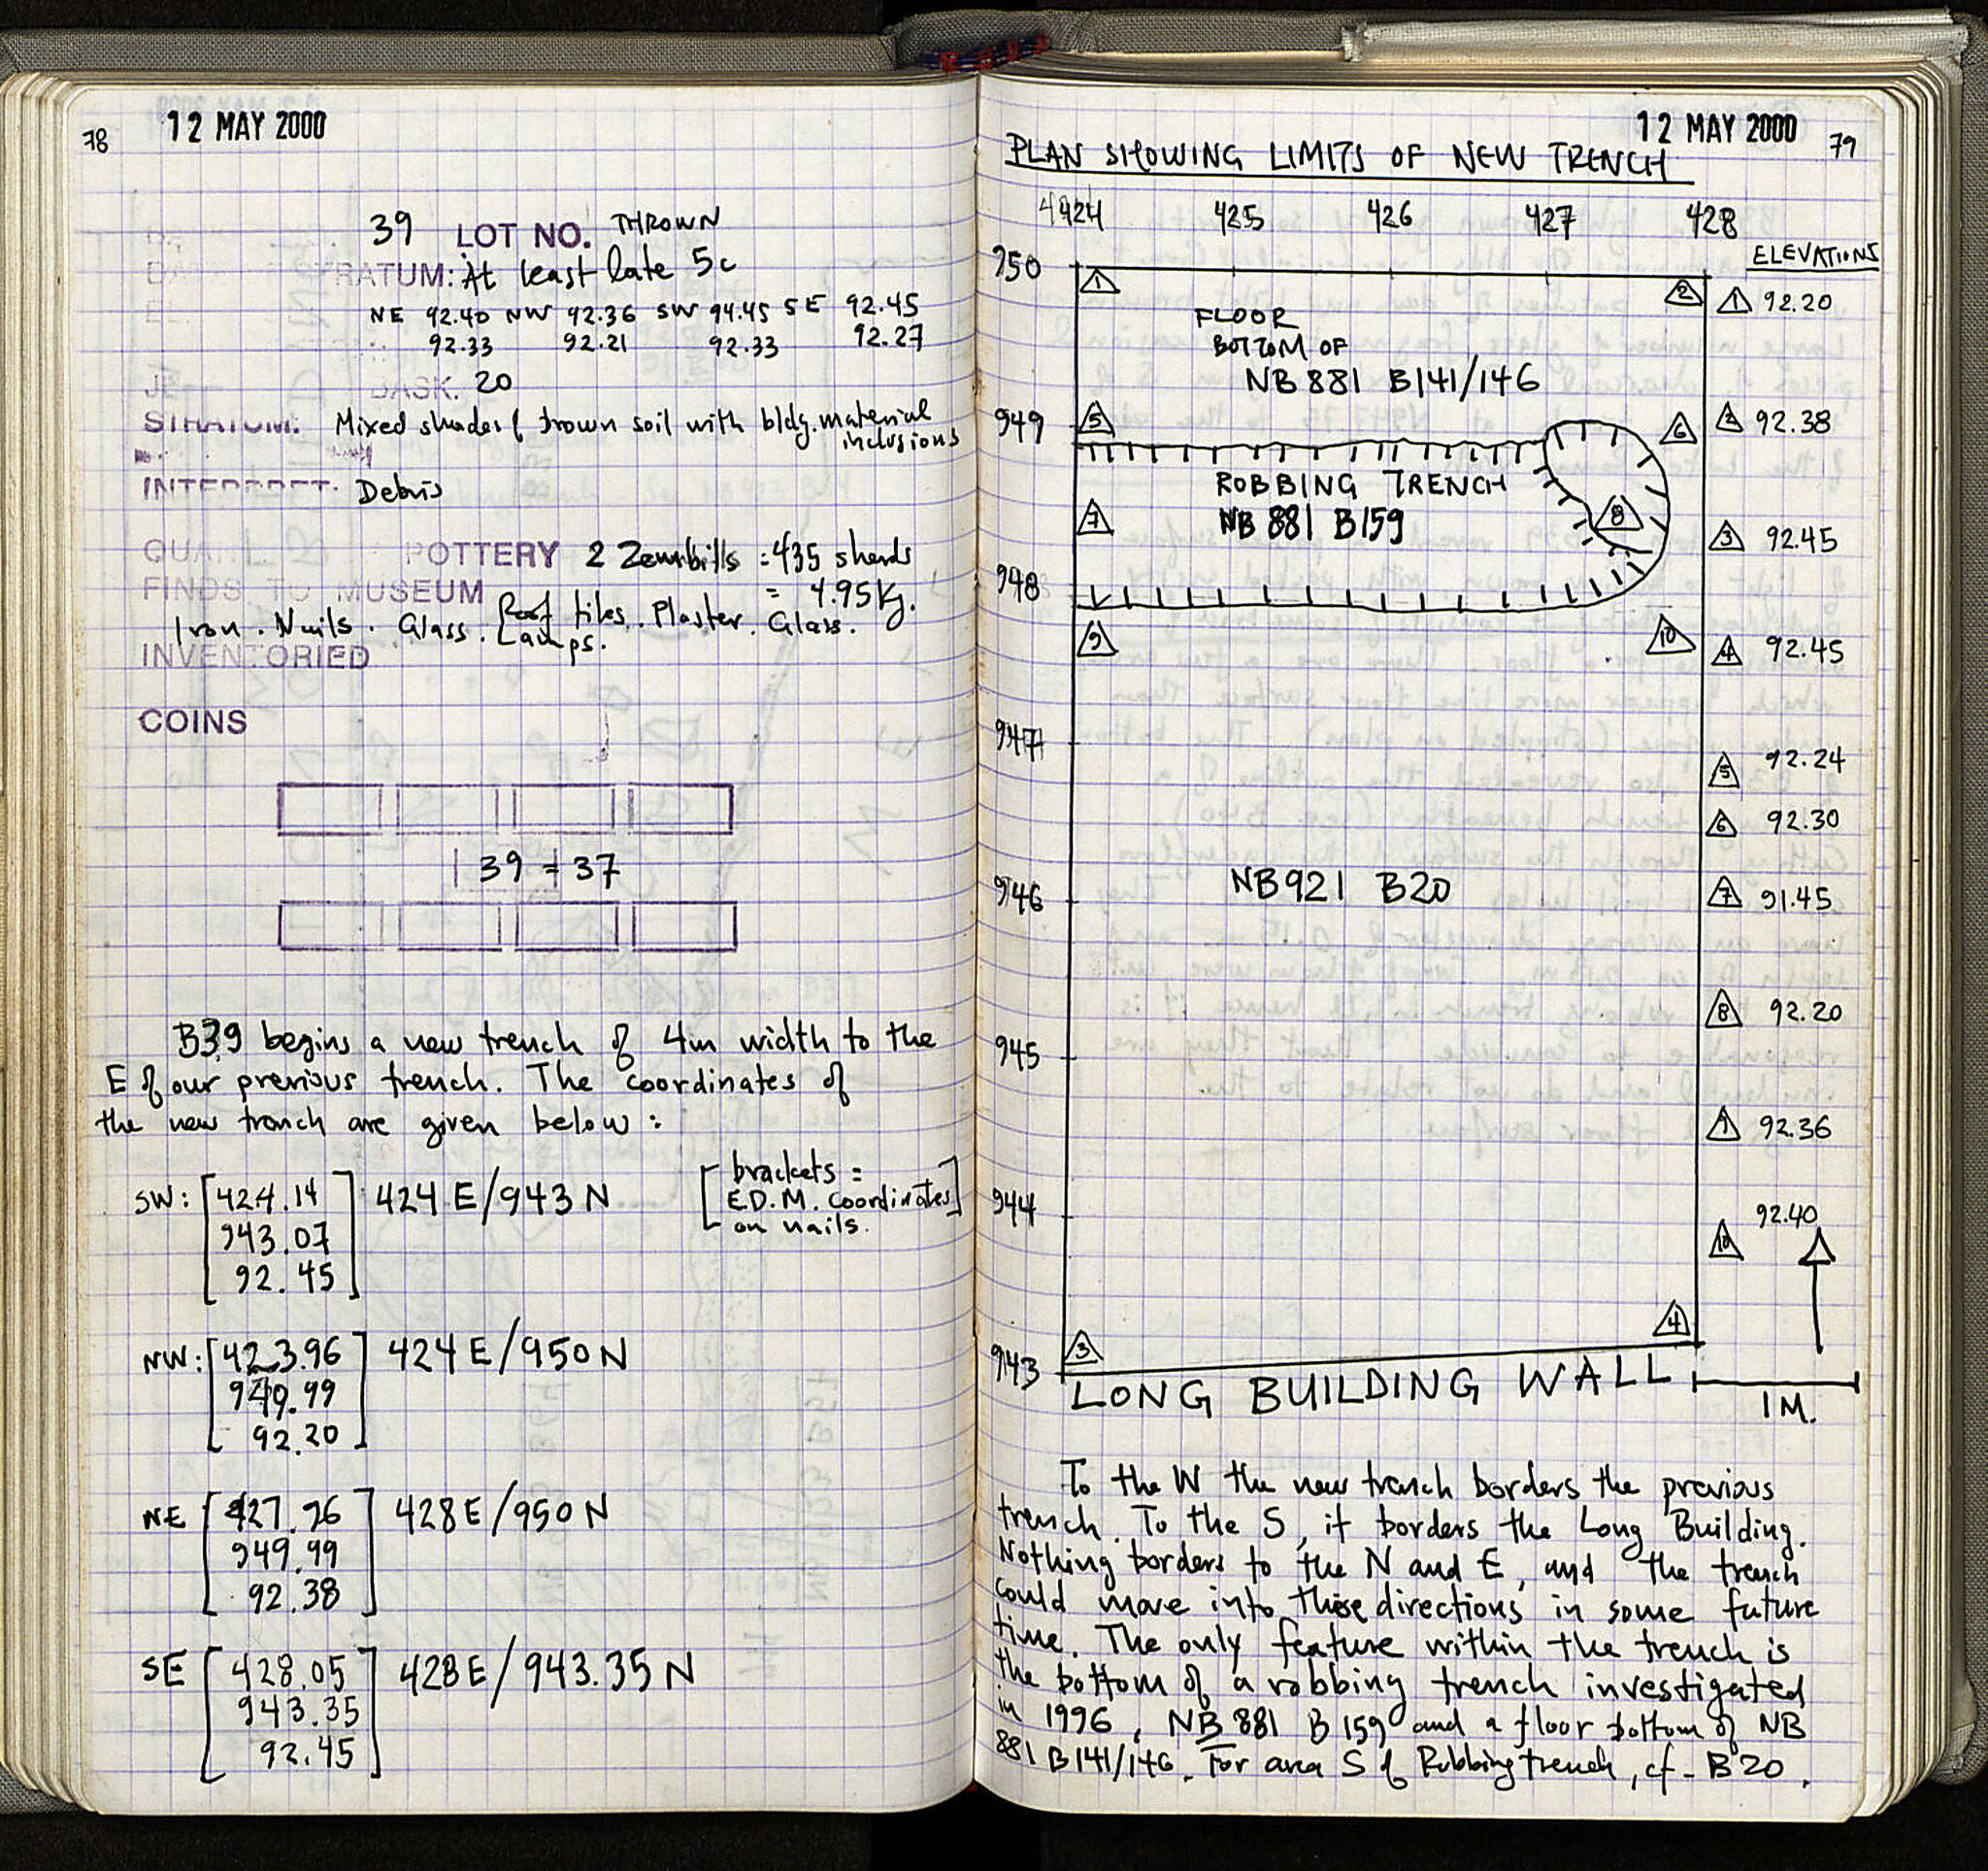 78
12 MAY 2000
39 LOT NO. THROWN
RATUM: At least late 5c
NE 92.40 NW 92.36 SW 94.45 SE 92.45
92.33 92.21 92.33 92.27
BASK. 20
STRATUM: Mixed shades of brown soil with bldg. material
inclusions
INTERPRET: Debris
QUAN POTTERY 2 Zembills = 435 sherds
FINDS TO MUSEUM = 4.95 Kg.
Iron. Nails. Glass. Roof tiles. Plaster. Glass.
Lamps.
INVENTORIED
COINS
39 = 37
B39 begins a new trench of 4m width to the
E of our previous trench. The coordinates of
the new trench are given below:
SW: [424.14 424 E/943 N [brackets =
943.07 E.D.M. coordinates
92.45] on nails.]
NW: [423.96 424 E/950 N
949.99
92.20]
NE [427.96 428 E/950 N
949.99
92.38]
SE [428.05 428 E/943.35 N
943.35
92.45]
12 MAY 2000 79
PLAN SHOWING LIMITS OF NEW TRENCH
424 425 426 427 428
ELEVATIONS
950
1
2
1 92.20
FLOOR
BOTTOM OF
NB 881 B141/146
949
5
6
2 92.38
ROBBING TRENCH
NB 881 B159
7
8
3 92.45
948
9
10
4 92.45
947
5 92.24
6 92.30
946
NB921 B20
7 91.45
8 92.20
945
9 92.36
944
10 92.40
943
3
4
LONG BUILDING WALL
1 M.
To the W the new trench borders the previous
trench. To the S, it borders the Long Building.
Nothing borders to the N and E, and the trench
could move into these directions in some future
time. The only feature within the trench is
the bottom of a robbing trench investigated
in 1996, NB 881 B 159 and a floor bottom of NB
881 B141/146. For area S of Robbing trench, cf. B20.